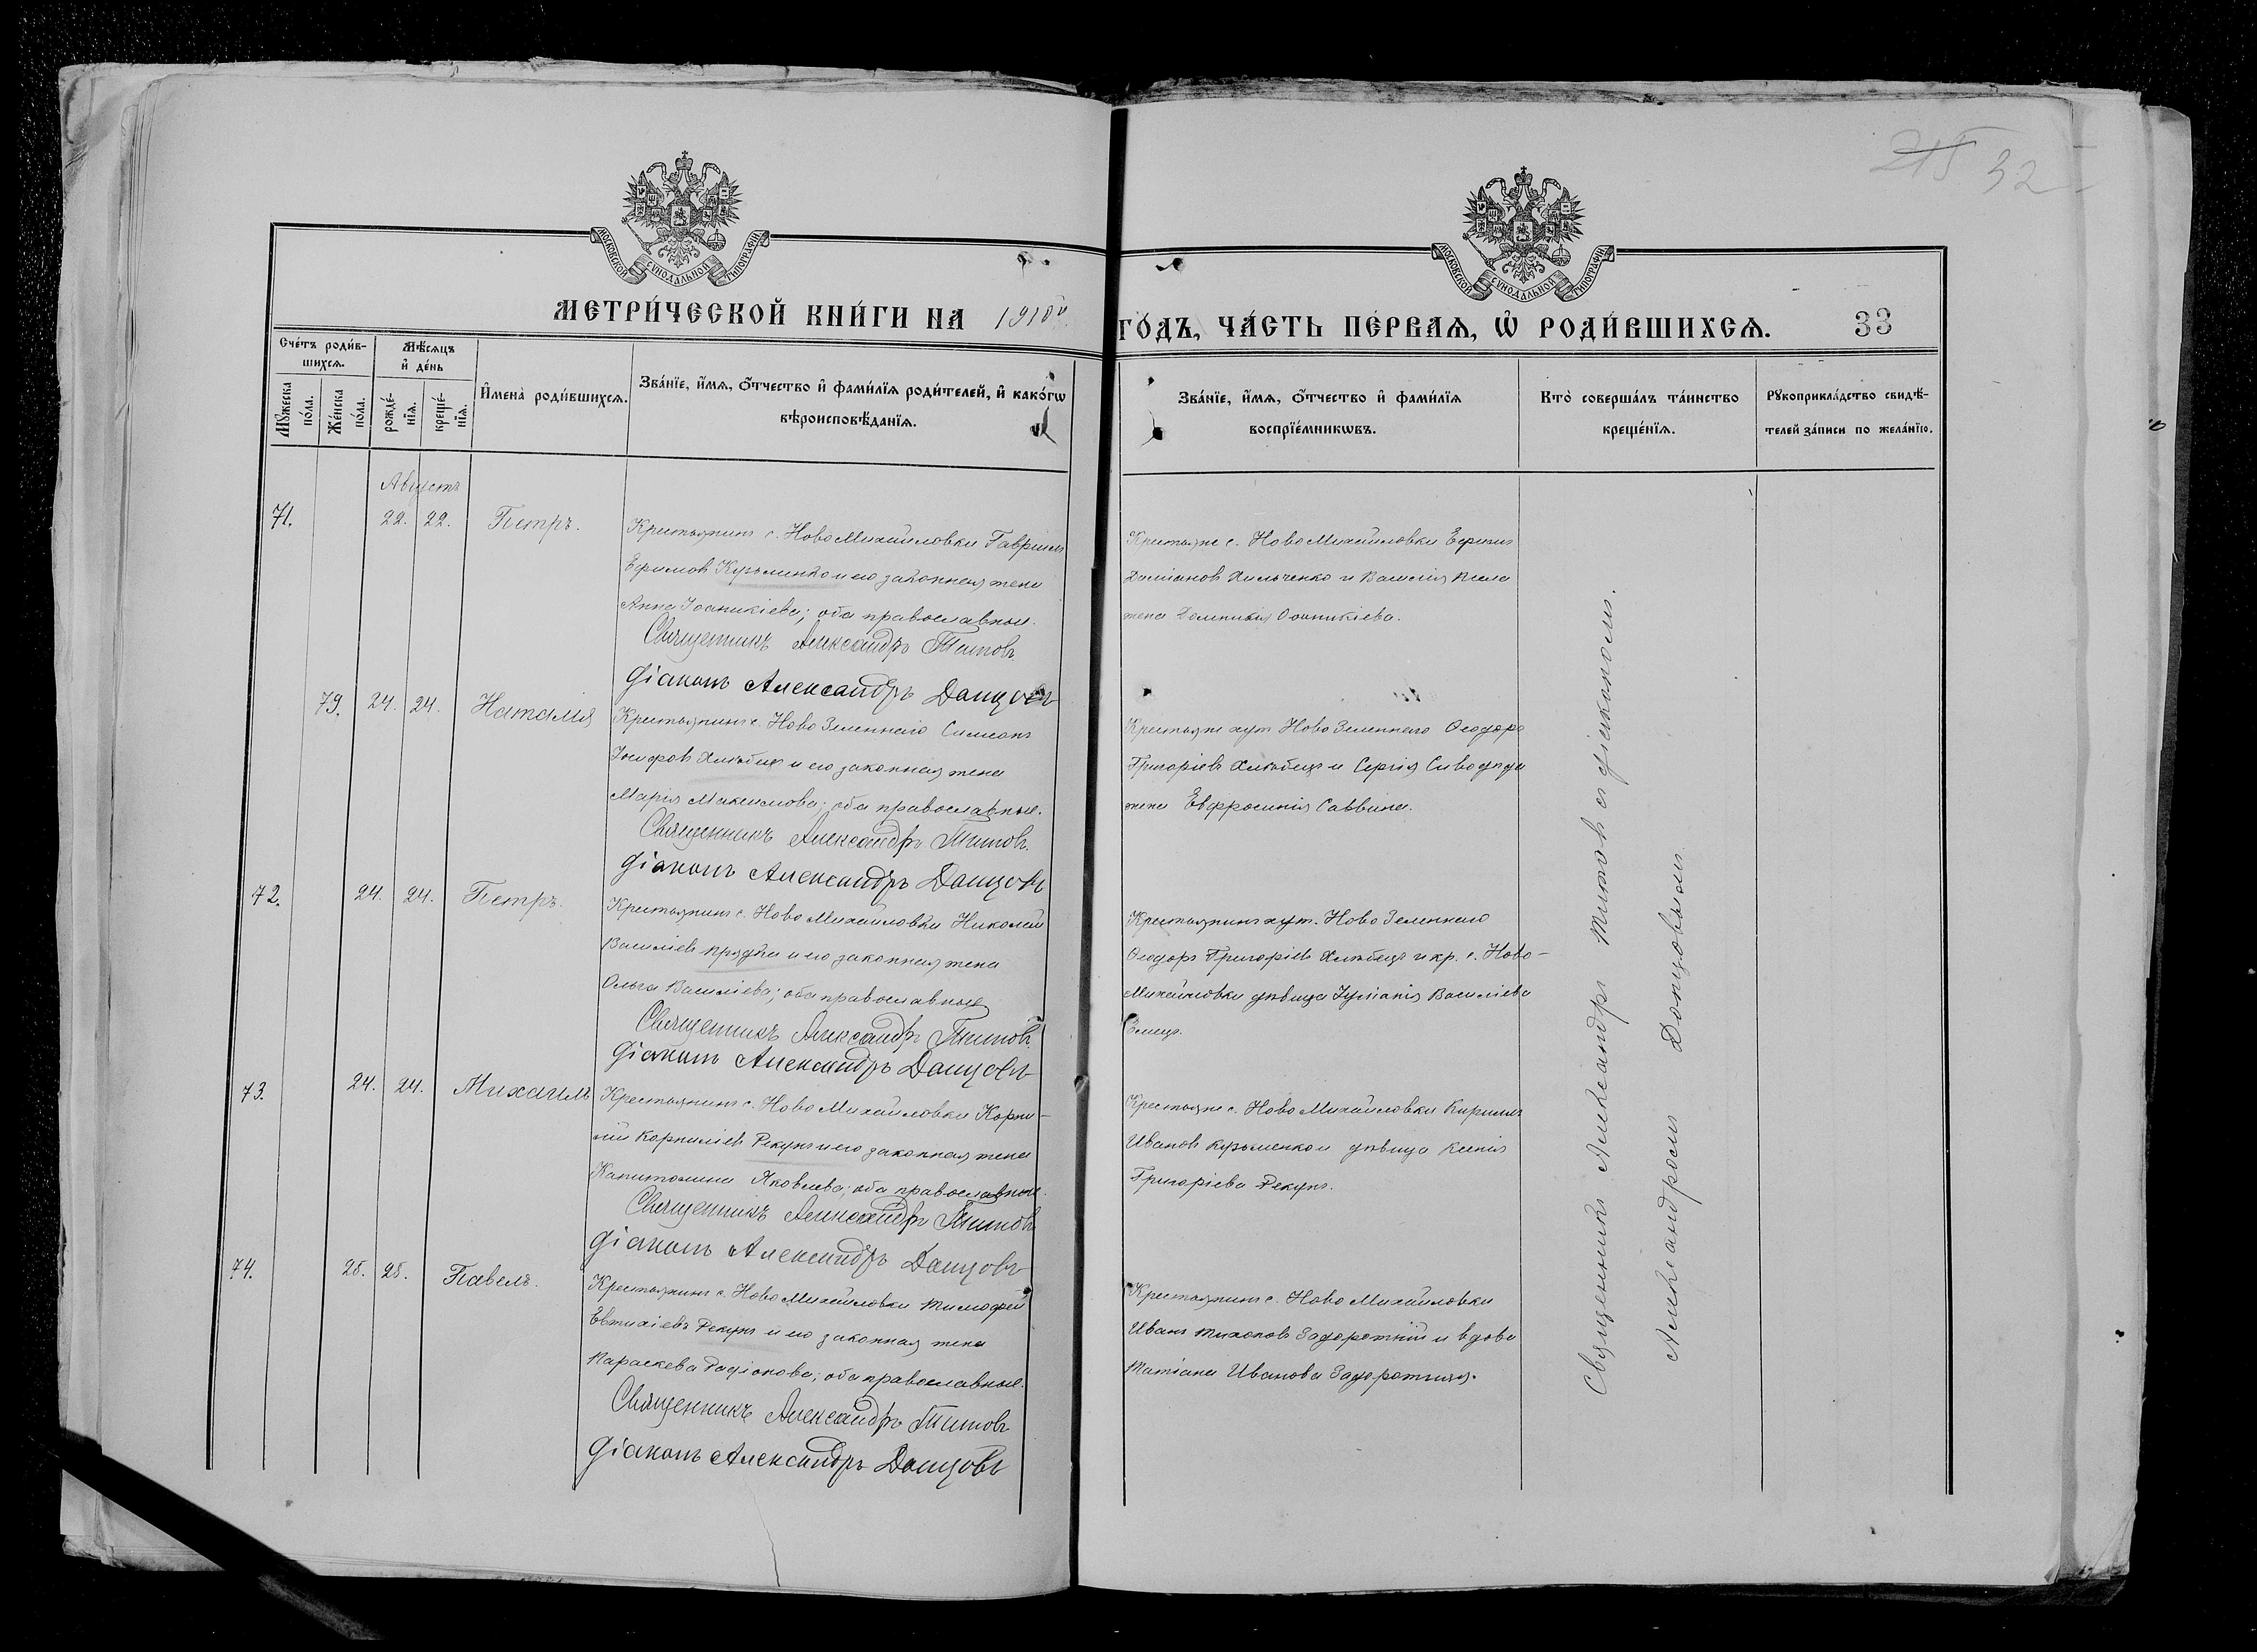 215 32
МОСКОВСКОЙ СѴНОДАЛЬНОЙ ТИПОГРАФІИ
МОСКОВСКОЙ СѴНОДАЛЬНОЙ ТИПОГРАФІИ
МЕТРИ́ЧЕСКОЙ КНИ́ГИ НА 1910й
ГО́ДЪ, ЧА́СТЬ ПЕ́РВАѦ, Ѡ҆ РОДИ́ВШИХСѦ. 33
Сче́тъ роди́в-
шихсѧ.
Мѣ́сѧцъ
и҆ де́нь
Мꙋ́жеска
по́ла.
Же́нска
по́ла.
рожде́-
нїѧ.
креще́-
нїѧ.
И҆мена̀ роди́вшихсѧ.
Зва́нїе, и҆́мѧ, ѻ҆́тчество и҆ фами́лїѧ роди́телей, и҆ како́гѡ
вѣроисповѣ́данїѧ.
Зва́нїе, и҆́мѧ, ѻ҆́тчество и҆ фами́лїѧ
воспрїе́мникѡвъ.
Кто̀ соверша́лъ та́инство
креще́нїѧ.
Рꙋкоприкла́дство свидѣ́-
телей за́писи по жела́нїю.
Августъ
71. 22. 22. Петръ.
Крестьянинъ с. НовоМихайловки Гавріилъ
Ефимовъ Кузьменко и его законная жена
Анна Іоаникіева; оба православные.
Священникъ Александръ Титовъ.
Діаконъ Александръ Донцовъ
Крестьяне с. НовоМихайловки
Даміановъ Хильченко и Василія
жена Домникія Іоанникіева.
79. 24. 24. Наталія
Крестьянинъ с. НовоЗеленнаго Симеонъ
Іосифовъ Хлѣбецъ и его законная жена
Марія Максимова; оба православные.
Священникъ Александръ Титовъ.
Діаконъ Александръ Донцовъ
Крестьяне хут. НовоЗеленнаго Ѳеодоръ
Григоріевъ Хлѣбецъ и Сергія Сиводѣда
жена Евфросинія Саввина.
72. 24. 24. Петръ.
Крестьянинъ с. НовоМихайловки Николай
Василіевъ Прядка и его законная жена
Ольга Василіева; оба православные
Священникъ Александръ Титовъ.
Діаконъ Александръ Донцовъ
Крестьянинъ хут. НовоЗеленнаго
Ѳеодоръ Григоріевъ Хлѣбецъ и кр. с. Ново-
Михайловки дѣвица Іуліанія Василіева
73. 24. 24. Михаилъ
Крестьянинъ с. НовоМихайловки Корни-
лій Корниліевъ Рекунъ и его законная жена
Капитолина Яковлева; оба православные.
Священникъ Александръ Титовъ
Діаконъ Александръ Донцовъ
Крестьяне с. НовоМихайловки Кириллъ
Ивановъ Кузьменко и дѣвица Ксенія
Григоріева Рекунъ.
74. 25. 25. Павелъ.
Крестьянинъ с. НовоМихайловки Тимофей
Евтихіевъ Рекунъ и его законная жена
Параскева Радіонова; оба православные.
Священникъ Александръ Титовъ
Діаконъ Александръ Донцовъ
Крестьянинъ с. НовоМихайловки
Иванъ Тихоновъ Задорожній и вдова
Татіана Иванова Задорожняя.
Священникъ Александръ Титовъ съ діакономъ
Александромъ Донцовымъ.